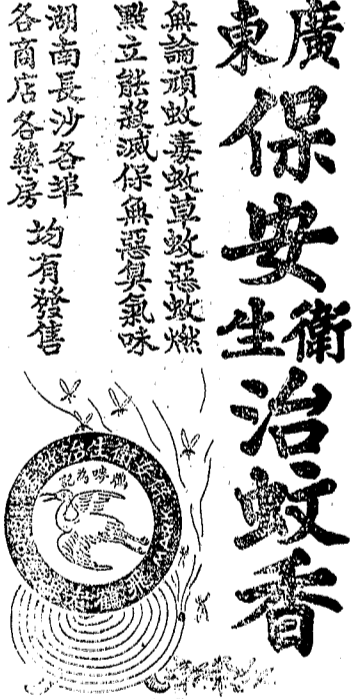 廣東
保安衛生治蚊香
無論頑蚊毒蚊草蚊惡蚊燃
點立能殺滅保無惡臭氣味
湖南長沙各埠
各商店各藥房
均有發售
為記